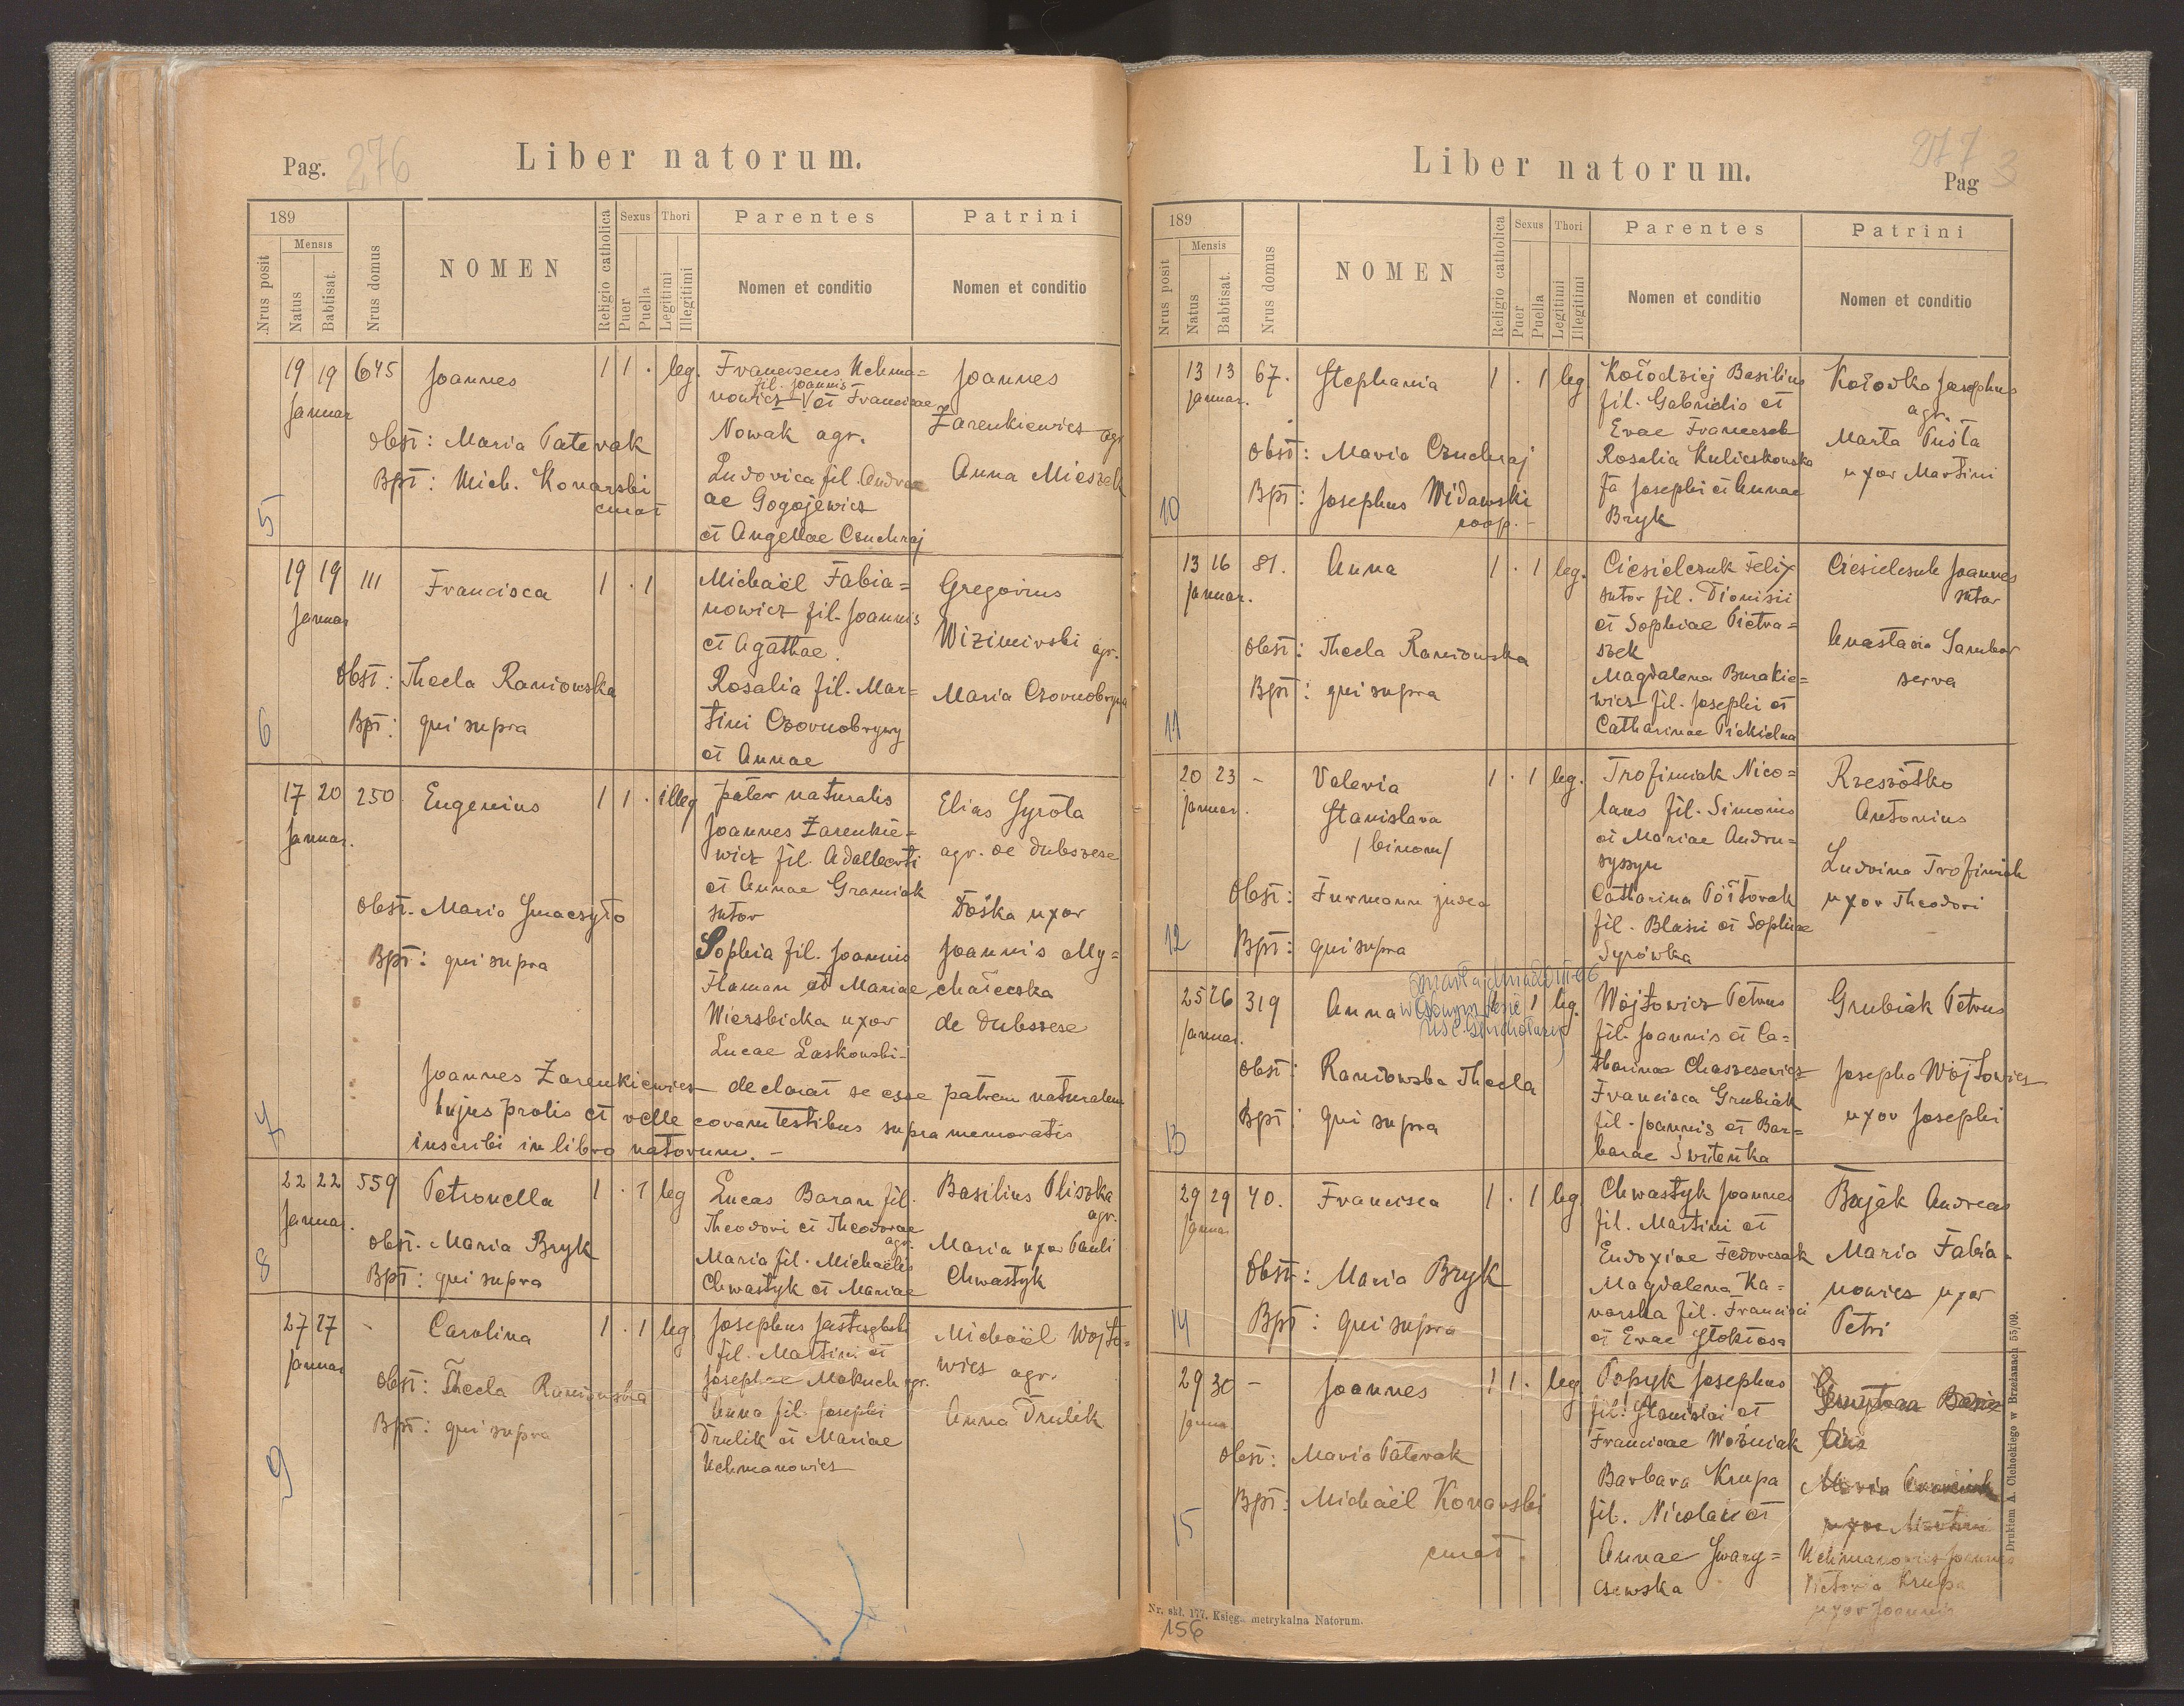 Pag. 276
Liber natorum.
189
Nrus posit
Mensis
Natus
Babtisat.
Nrus domus
NOMEN
Religio catholica
Sexus
Puer
Puella
Thori
Legitimi
Illegitimi
Parentes
Nomen et conditio
Patrini
Nomen et conditio
5
19 19 645 Joannes 1 1 · leg.
Januar
Obst: Maria Paterak
Bpt: Mich. Konarski
Franciscus Uchma=
fil. Joannis
nowicz et Franciscae
Nowak agr.
Ludovica fil. Andre
ae Gogojewicz
et Angellae Czuchraj
Joannes
Zarenkiewicz agr
Anna Mieszek
6
19 19 111 Francisca 1 · 1
Januar
Obst: Thecla Raniowska
Bpt: qui supra
Michaël Fabia=
nowicz fil. Joannis
et Agathae.
Rosalia fil. Mar=
tini Czornobrywy
et Annae
Gregorius
Wizimirski agr.
Maria Czornobrywa
7
17 20 250 Eugenius 1 1 · illeg
Januar.
Obst. Maria Smaczyło
Bpt: qui supra
pater naturalis
Joannes Zarenkie=
wicz fil. Adalberti
et Annae Graniak
sutor
Sophia fil. Joannis
Flaman et Mariae
Wierzbicka uxor
Lucae Laskowski-
Elias Syrota
agr. de Dubszcze
Doska uxor
Joannis My=
chałeczka
de Dubszcze
Joannes Zarenkiewicz declarat se esse patrem naturalem
hujus prolis et velle coram testibus supra memoratis
inscribi in libro natorum. -
8
22 22 559 Petronella 1 · 1 leg
Januar.
Obst. Maria Bryk
Bpt: qui supra
Lucas Baran fil.
Theodori et Theodorae
agr.
Maria fil. Michaëlis
Chwastyk et Mariae
Basilius Pliszka
agr.
Maria uxor Pauli
Chwastyk
9
27 27 - Carolina 1 · 1 leg
Januar
Obst: Thecla Raniowska
Bpt: qui supra
Josephus
fil. Martini et
Josephae Makuch agr.
Anna fil. Josephi
Drulik et Mariae
Uchmanowicz
Michaël Wojto=
wicz agr.
Anna Drulik
Liber natorum.
277
Pag 3
189
Nrus posit
Mensis
Natus
Babtisat.
Nrus domus
NOMEN
Religio catholica
Sexus
Puer
Puella
Thori
Legitimi
Illegitimi
Parentes
Nomen et conditio
Patrini
Nomen et conditio
10
13 13 67. Stephania 1 · 1 leg
Januar.
Obst: Maria Czuchraj
Bpt: Josephus Widawski
coop. -
Kołodziej Basilius
fil. Gabrielis et
Evae Franeczek
Rosalia Kuliczkowska
fa Josephi et Annae
Bryk
Kołodka Josephus
agr.
Marta Pusta
uxor Martini
11
13 16 81. Anna 1 · 1 leg.
Januar.
Obst: Thecla Raniowska
Bpt: qui supra
Ciesielczuk Felix
sutor fil. Dionisii
et Sophiae Pietra=
szek
Magdalena Burakie=
wicz fil. Josephi et
Catharinae Piekielna
Ciesielczuk Joannes
sutor
Anastasia Sambor
serva
12
20 23 - Valeria 1 · 1 leg.
Januar.
Stanislava
/binom/
Obst: Furmann judea
Bpt: qui supra
Trofimiak Nico=
laus fil. Simonis
et Mariae Andru=
syszyn
Catharina Półtorak
fil. Blasii et Sophiae
Syrówka
Rzeszótko
Antonius
Ludvina Trofimiak
uxor Theodori
13
25 26 319 Anna 1 leg.
Januar.
Obst: Raniowska Thecla
Bpt: qui supra
Wojtowicz Petrus
fil. Joannis et Ca=
tharinae Chaszczewicz
Francisca Grubiak
fil. Joannis et Bar=
barae Switenka
Grubiak Petrus
Josepha Wojtowicz
uxor Josephi
14
29 29 40. Francisca 1 · 1 leg
Januar
Obst: Maria Bryk
Bpt: qui supra
Chwastyk Joannes
fil. Martini et
Eudoxiae Fedorczak
Magdalena Ka=
narska fil. Francisci
et Evae Stokłosa
Bajak Andreas
Maria Fabia-
nowicz uxor
Petri
15
29 30 - Joannes 1 1 · leg
Januar
Obst: Maria Paterak
Bpt: Michaël Konarski
Popyk Josephus
fil. Stanislai et
Franciscae Woźniak
Barbara Krupa
fil. Nicolai et
Annae Gwary=
czewska
Uchmanowicz Joannes
Victoria Krupa
uxor Joannis
Nr. skł. 177. Księga metrykalna Natorum.
156
Drukiem A. Olchockiego w Brzeżanach 55/09.